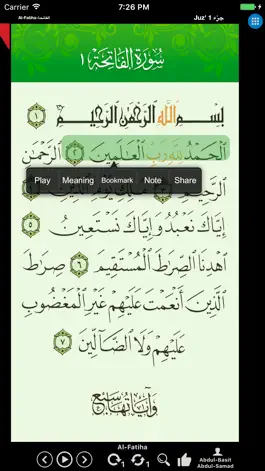 Carrier 7:26 PM
Al-Fatiha-الفاتحة Juz' 1 جزء
سُورَةُ الفَاتِحَةِ ١
بِسْمِ اللَّهِ الرَّحْمَٰنِ الرَّحِيمِ ١
الْحَمْدُ لِلَّهِ رَبِّ الْعَالَمِينَ ٢ الرَّحْمَٰنِ
Play Meaning Bookmark Note Share
الرَّحِيمِ
إِيَّاكَ نَعْبُدُ وَإِيَّاكَ نَسْتَعِينُ ٥
اهْدِنَا الصِّرَاطَ الْمُسْتَقِيمَ ٦ صِرَاطَ
الَّذِينَ أَنْعَمْتَ عَلَيْهِمْ غَيْرِ الْمَغْضُوبِ
عَلَيْهِمْ وَلَا الضَّالِّينَ ٧
وَآيَاتُهَا سَبْعٌ
Al-Fatiha
1 1 Abdul-Basit
Abdul-Samad